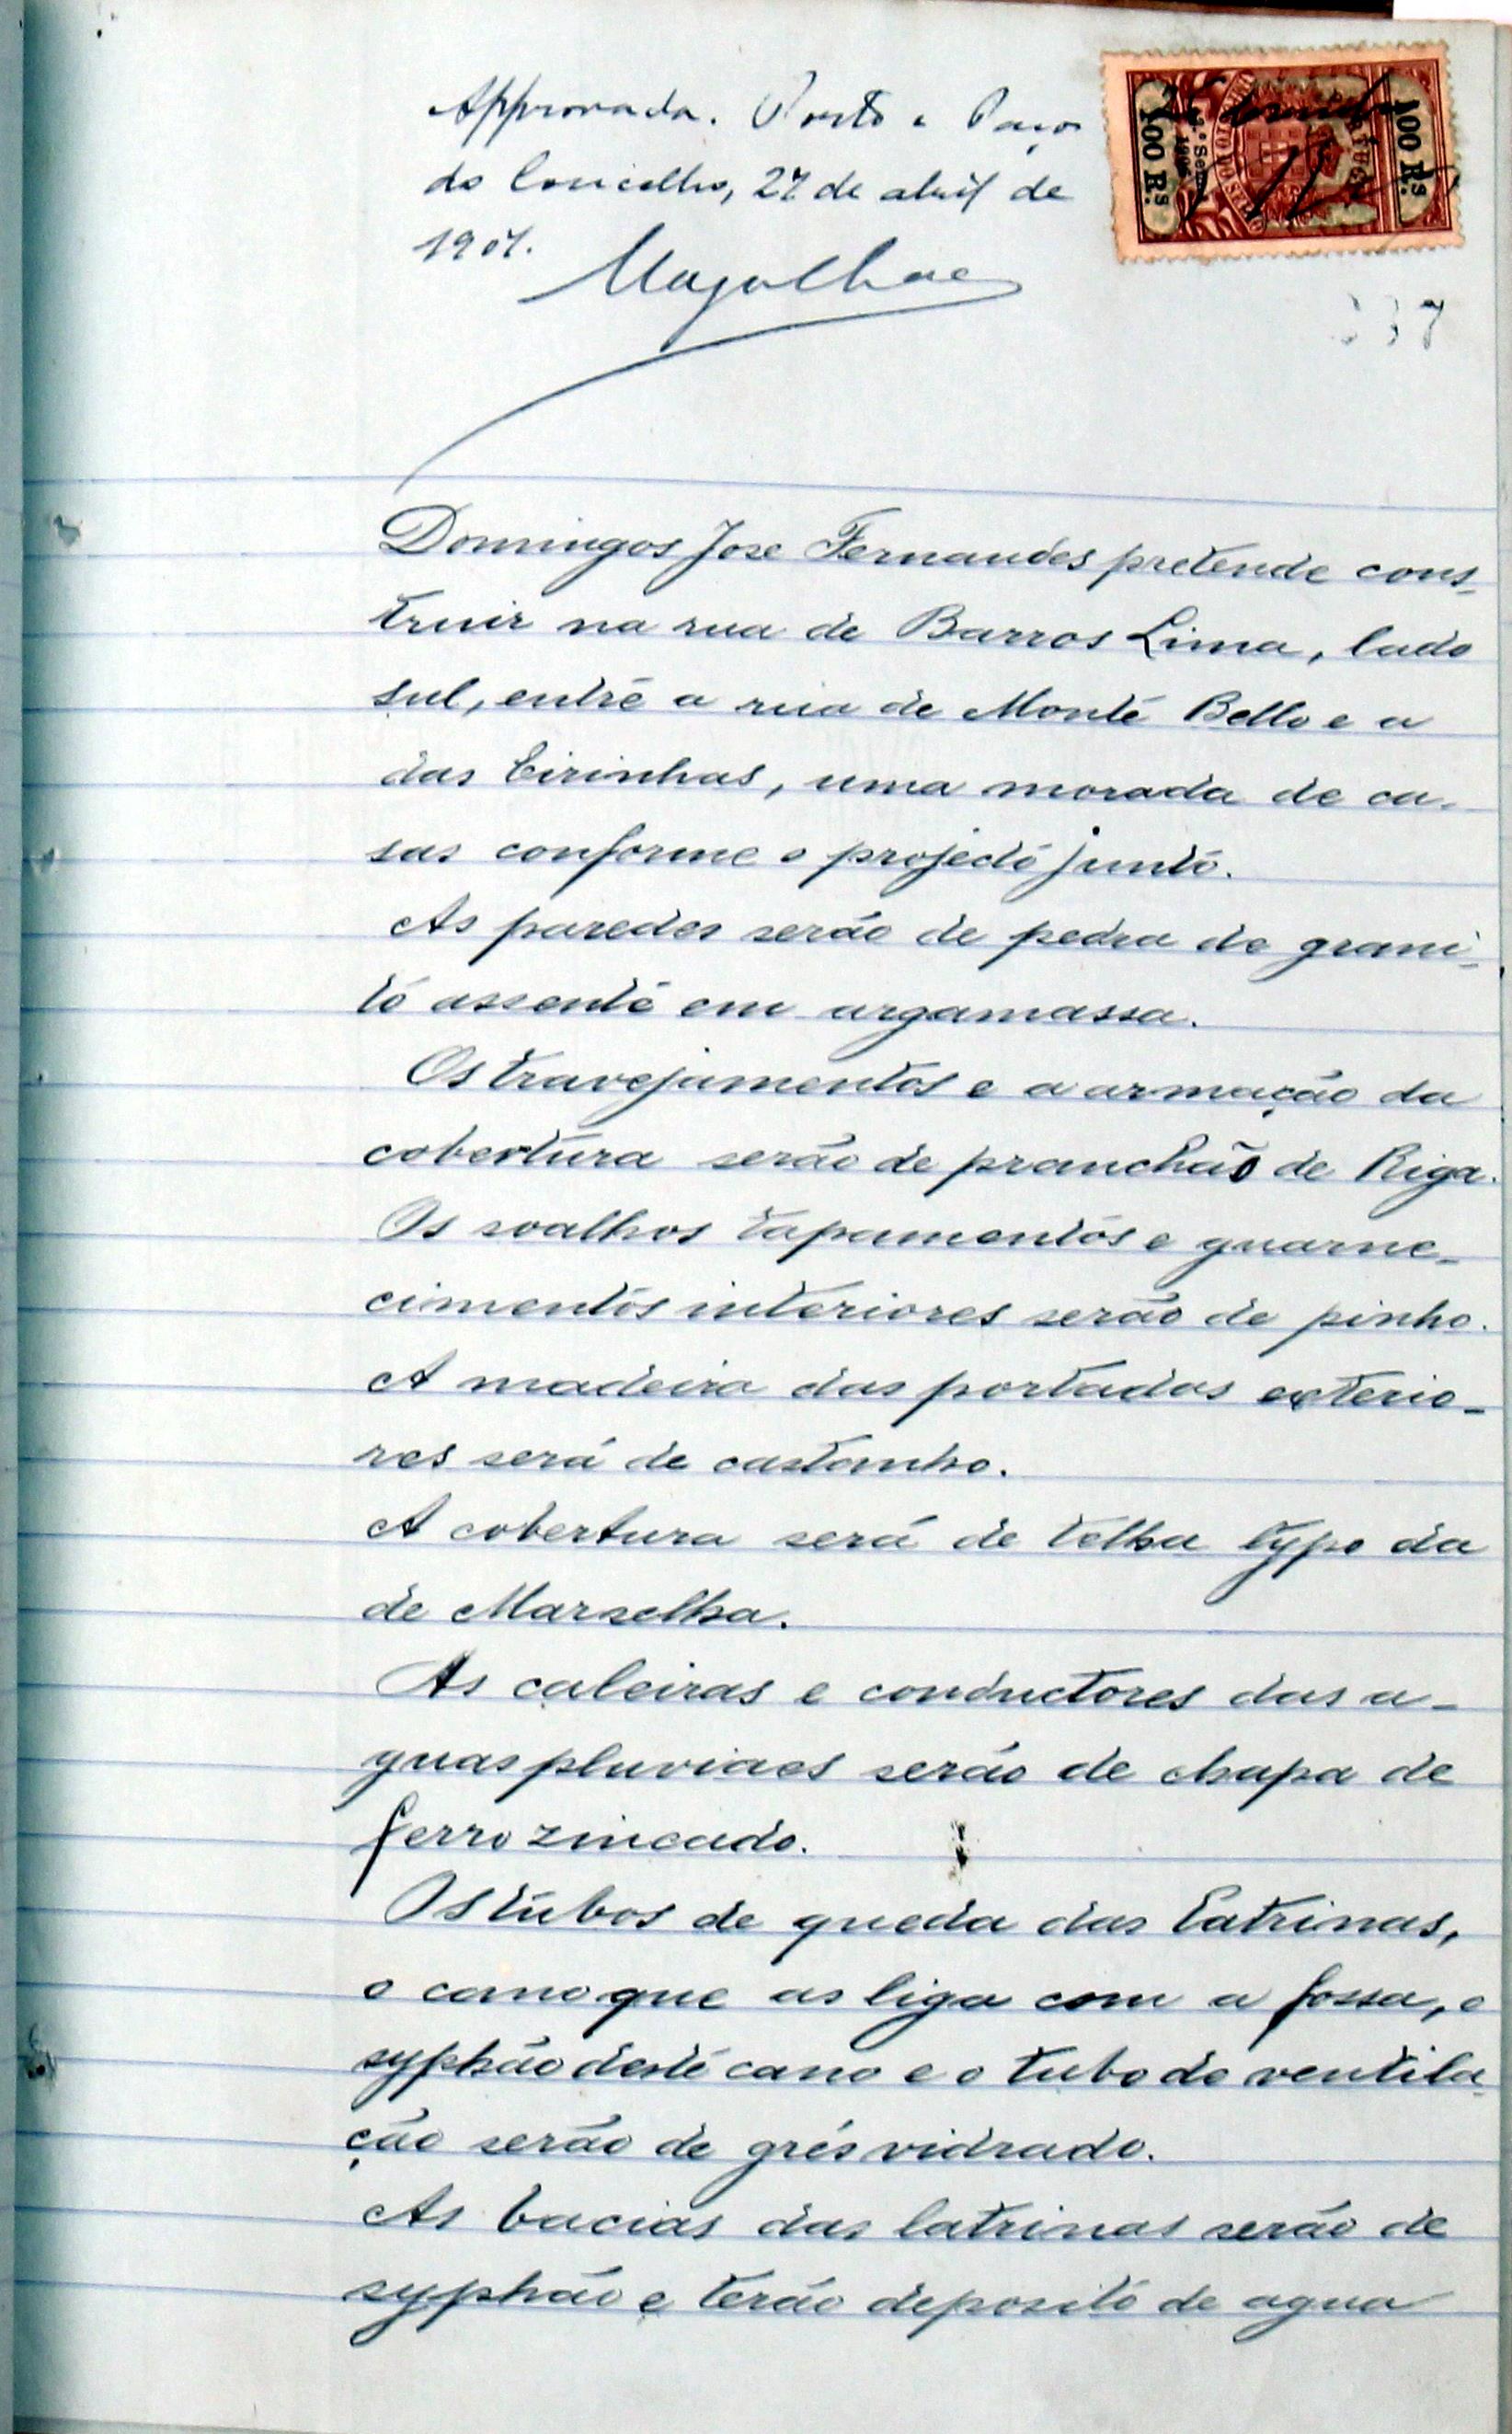 Approvada. Porto e Paços
do Concelho, 27 de abril de
1907.
Magalhães
100 Rs
100 Rs
337
Domingos Jose Fernandes pretende cons-
truir na rua de Barros Lima, lado
sul, entre a rua de Monte Bello e a
das Eirinhas, uma morada de ca-
sas conforme o projecto junto.
As paredes serão de pedra de grani-
to assente em argamassa.
Os travejamentos e a armação da
cobertura serão de pranchão de Riga.
Os soalhos tapamentos e guarne-
cimentos interiores serão de pinho.
A madeira das portadas exterio-
res será de castanho.
A cobertura será de telha typo da
de Marselha.
As caleiras e conductores das a-
guas pluviaes serão de chapa de
ferro zincado.
Os tubos de queda das latrinas,
o cano que as liga com a fossa, o
syphão deste cano e o tubo de ventila-
ção serão de grés vidrado.
As bacias das latrinas serão de
syphão e terão deposito de agua